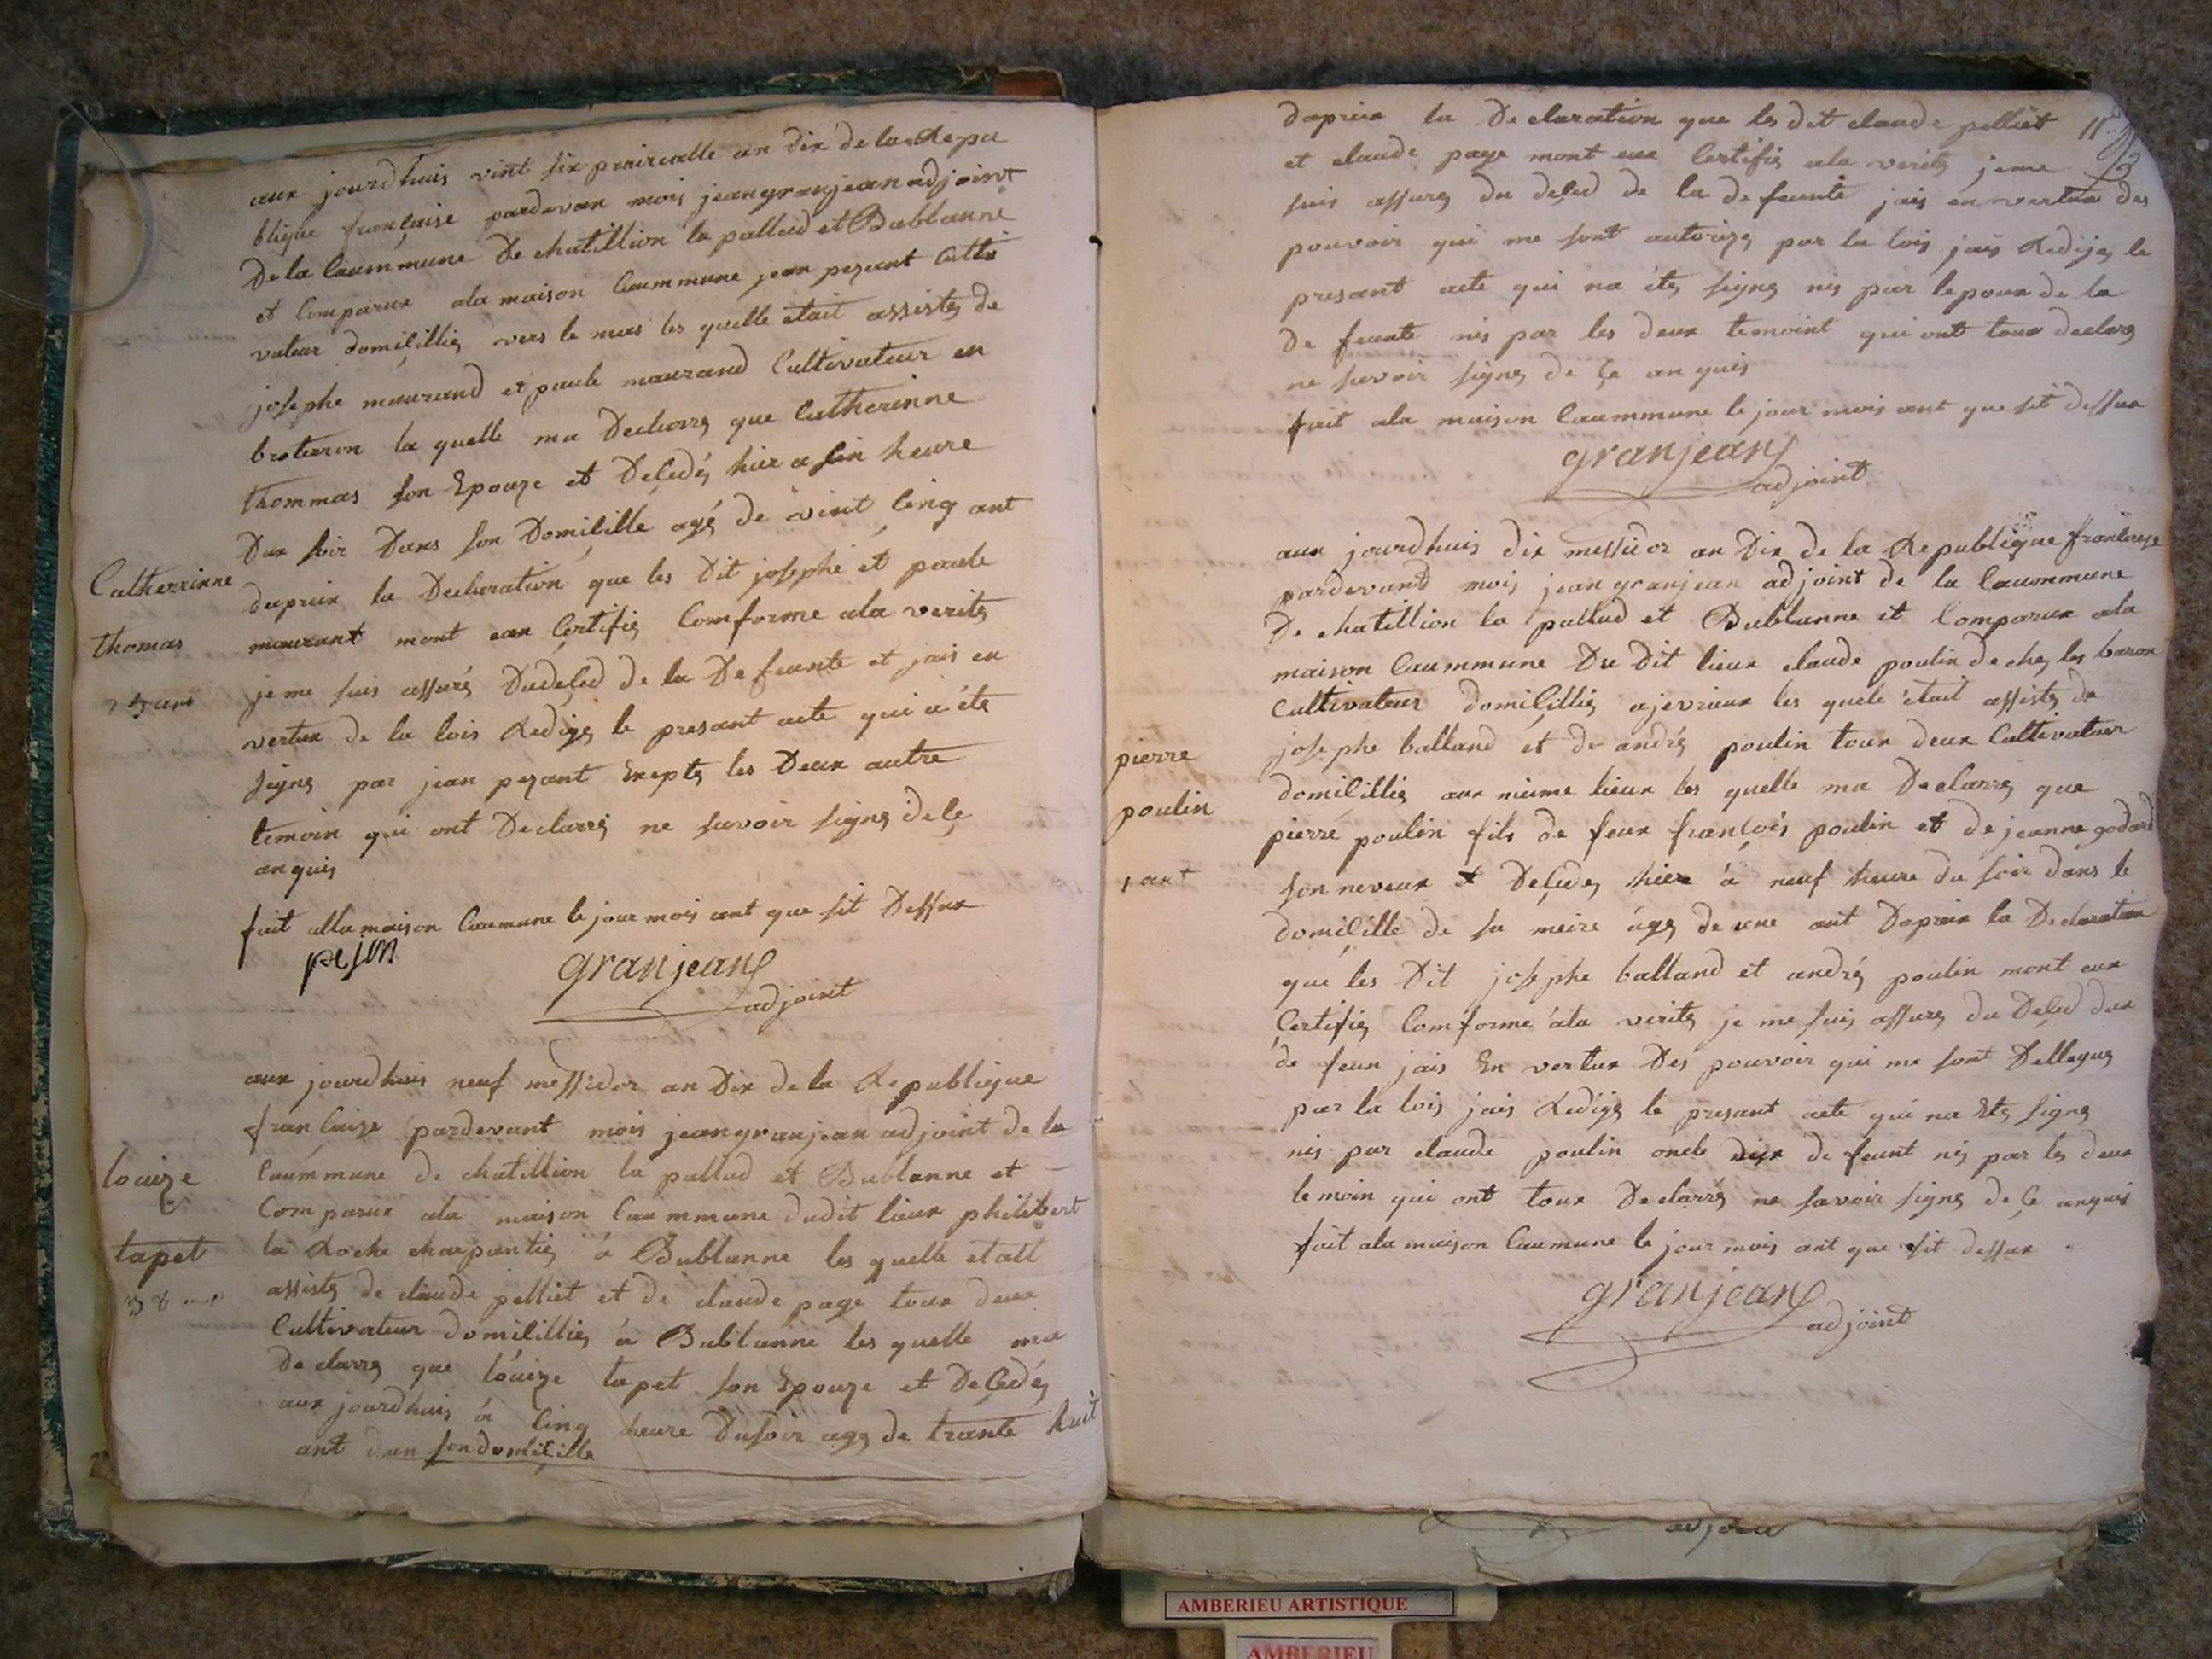 aux jourdhuis vint six prairealle an dix de la Repu
blique francaise pardevan mois jean granjean adjoint
De la Caummune De chatillion la pallud et Bublanne
et Comparux ala maison Caummune jean pezant Culti
vateur domicillié vers le mas les quelle etait assisté de
josephe maurand et paule maurand Cultivateur en
broteron la quelle ma Declarré que Catherinne
thommas son Epouze et Decedé hier a sin heure
Dux soir Dans son Domicille agé de vint cinq ant
Catherrinne
thomas
25 ans
daprix la Declaration que les Dit josephe et paule
maurant mont eux Certifié Comforme ala verité
je me suis assuré Du deced de la De feunte et jais en
vertux de la lois Redigé le presant acte qui a été
signé par jean pezant Exepté les Deux autre
temoin qui ont Declarré ne savoir signé de ce
anquis
fait alla maison Caumune le jour mois ant que sit Dessux
pejon
granjean
adjoint
aux jourdhuis neuf messidor an Dix de la Republique
francaize pardevant mois jean granjean adjoint de la
Caummune de chatillion la pallud et Bublanne et
Comparux ala maison Caummune dudit lieux philibert
la Roche charpantié à Bublanne les quelle etait
assisté de claude pelliet et de claude page toux deux
Cultivateur domicillié à Bublanne les quelle ma
Declarré que louize tapet son Epouze et Decedé
aux jourdhuis à cinq heure Dusoir agé de trante huit
ant dan son domicille
louize
tapet
38 ans
daprix la Declaration que les dit claude pelliet
et claude page mont eux Certifié ala verité jeme
suis assuré du deced de la defeunte jais en vertux des
pouvoir qui me sont autorizé par la lois jais Redijé le
presant acte qui na été signé nis par lepoux de la
De feunte nis par les deux temoint qui ont toux declaré
ne savoir signé de ce anquis
fait ala maison Caummune le jour mois ant que sit dessux
granjean
adjoint
aux jourdhuis dix messidor an Dix de la Republique francaise
pardevand mois jean granjean adjoint de la Caummune
De chatillion la pallud et Bublanne et Comparux ala
maison Caummune Du Dit lieux claude poulin de ché les baron
Cultivateur domicillié ajevrieux les quele était assisté de
josephe balland et de andré poulin toux deux Cultivateur
domicillié aux mime lieux les quelle ma Declarré que
pierre poulin fils de feux francois poulin et de jeanne godard
son neveux et Decedé hier à neuf heure du soir dans le
domicille de sa meire agé de une ant Daprix la Declaration
pierre
poulin
1 ant
que les Dit josephe balland et andré poulin mont eux
Certifié Comforme àla verité je me suis assuré du Deced dux
de feun jais En vertux Des pouvoir qui me sont Dellegué
par la lois jais Redigé le presant acte qui na Eté signé
nis par claude poulin oncle dux de feunt nis par les deux
temoin qui ont toux Declarré ne savoir signé de ce anquis
fait ala maison Caumune le jour mois ant que sit dessux
granjean
adjoint
adjoint
AMBERIEU ARTISTIQUE
AMBERIEU